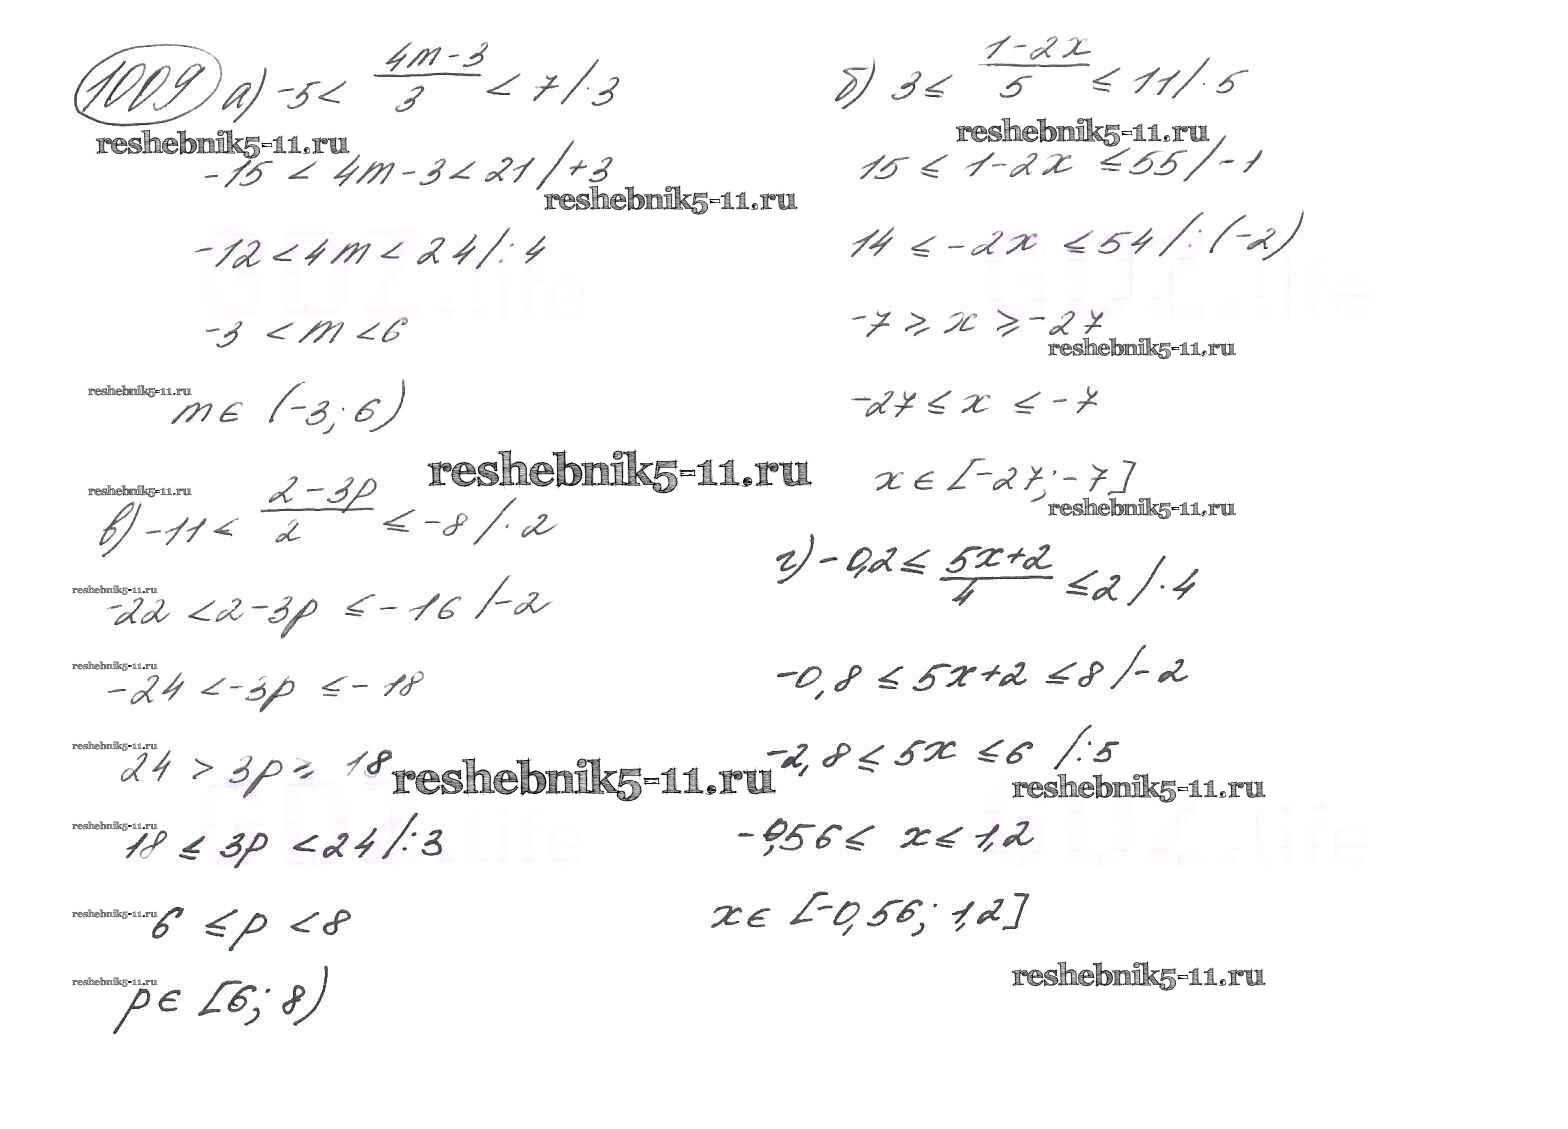 1009 а) -5 < (4m-3)/3 < 7 /·3
reshebnik5-11.ru
-15 < 4m-3 < 21 /+3
reshebnik5-11.ru
-12 < 4m < 24 /:4
-3 < m < 6
reshebnik5-11.ru
m ∈ (-3; 6)
reshebnik5-11.ru
reshebnik5-11.ru
в) -11 ≤ (2-3p)/2 ≤ -8 /·2
reshebnik5-11.ru
-22 < 2-3p ≤ -16 /-2
reshebnik5-11.ru
-24 < -3p ≤ -18
reshebnik5-11.ru
24 > 3p ≥ 18
reshebnik5-11.ru
reshebnik5-11.ru
18 ≤ 3p < 24 /:3
reshebnik5-11.ru
6 ≤ p < 8
reshebnik5-11.ru
p ∈ [6; 8)
б) 3 ≤ (1-2x)/5 ≤ 11 /·5
reshebnik5-11.ru
15 ≤ 1-2x ≤ 55 /-1
14 ≤ -2x ≤ 54 /:(-2)
-7 ≥ x ≥ -27
reshebnik5-11.ru
-27 ≤ x ≤ -7
x ∈ [-27; -7]
reshebnik5-11.ru
г) -0,2 ≤ (5x+2)/4 ≤ 2 /·4
-0,8 ≤ 5x+2 ≤ 8 /-2
-2,8 ≤ 5x ≤ 6 /:5
reshebnik5-11.ru
-0,56 ≤ x ≤ 1,2
x ∈ [-0,56; 1,2]
reshebnik5-11.ru